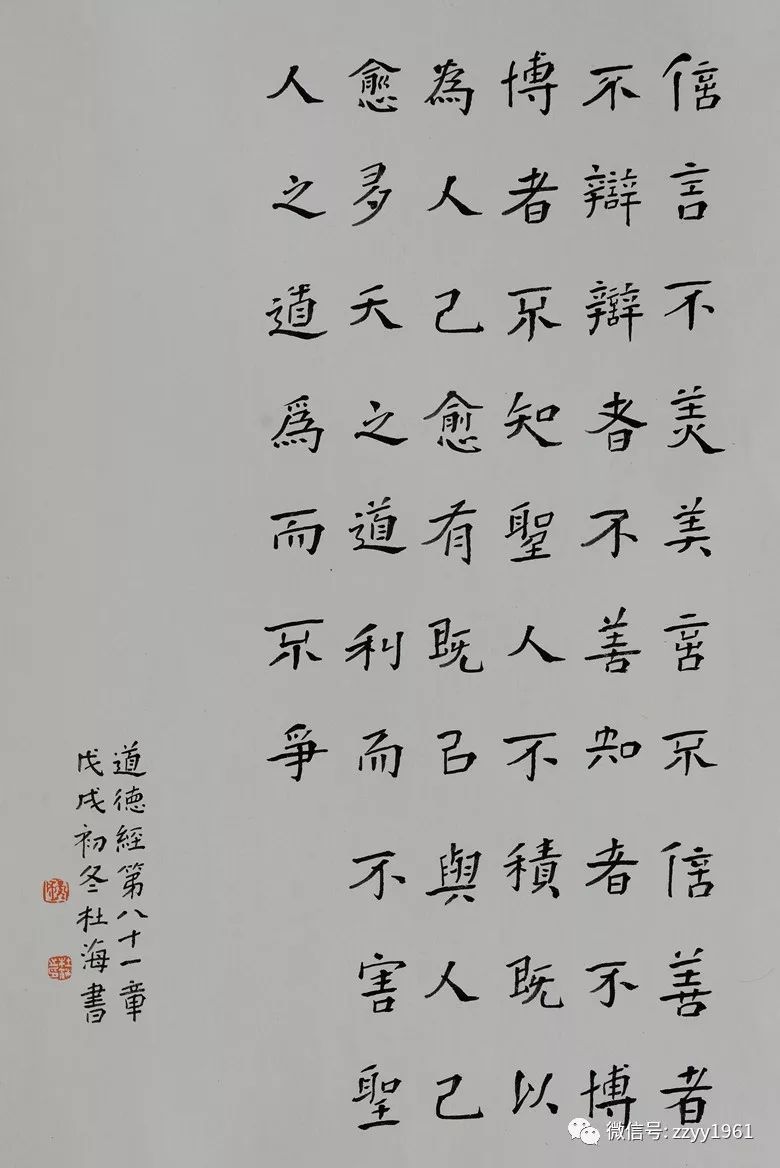 信言不美美言不信善者
不辯辯者不善知者不博
博者不知聖人不積既以
為人己愈有既㠯與人己
愈多天之道利而不害聖
人之道爲而不爭
道德經第八十一章
戊戌初冬杜海書
微信号: zzyy1961